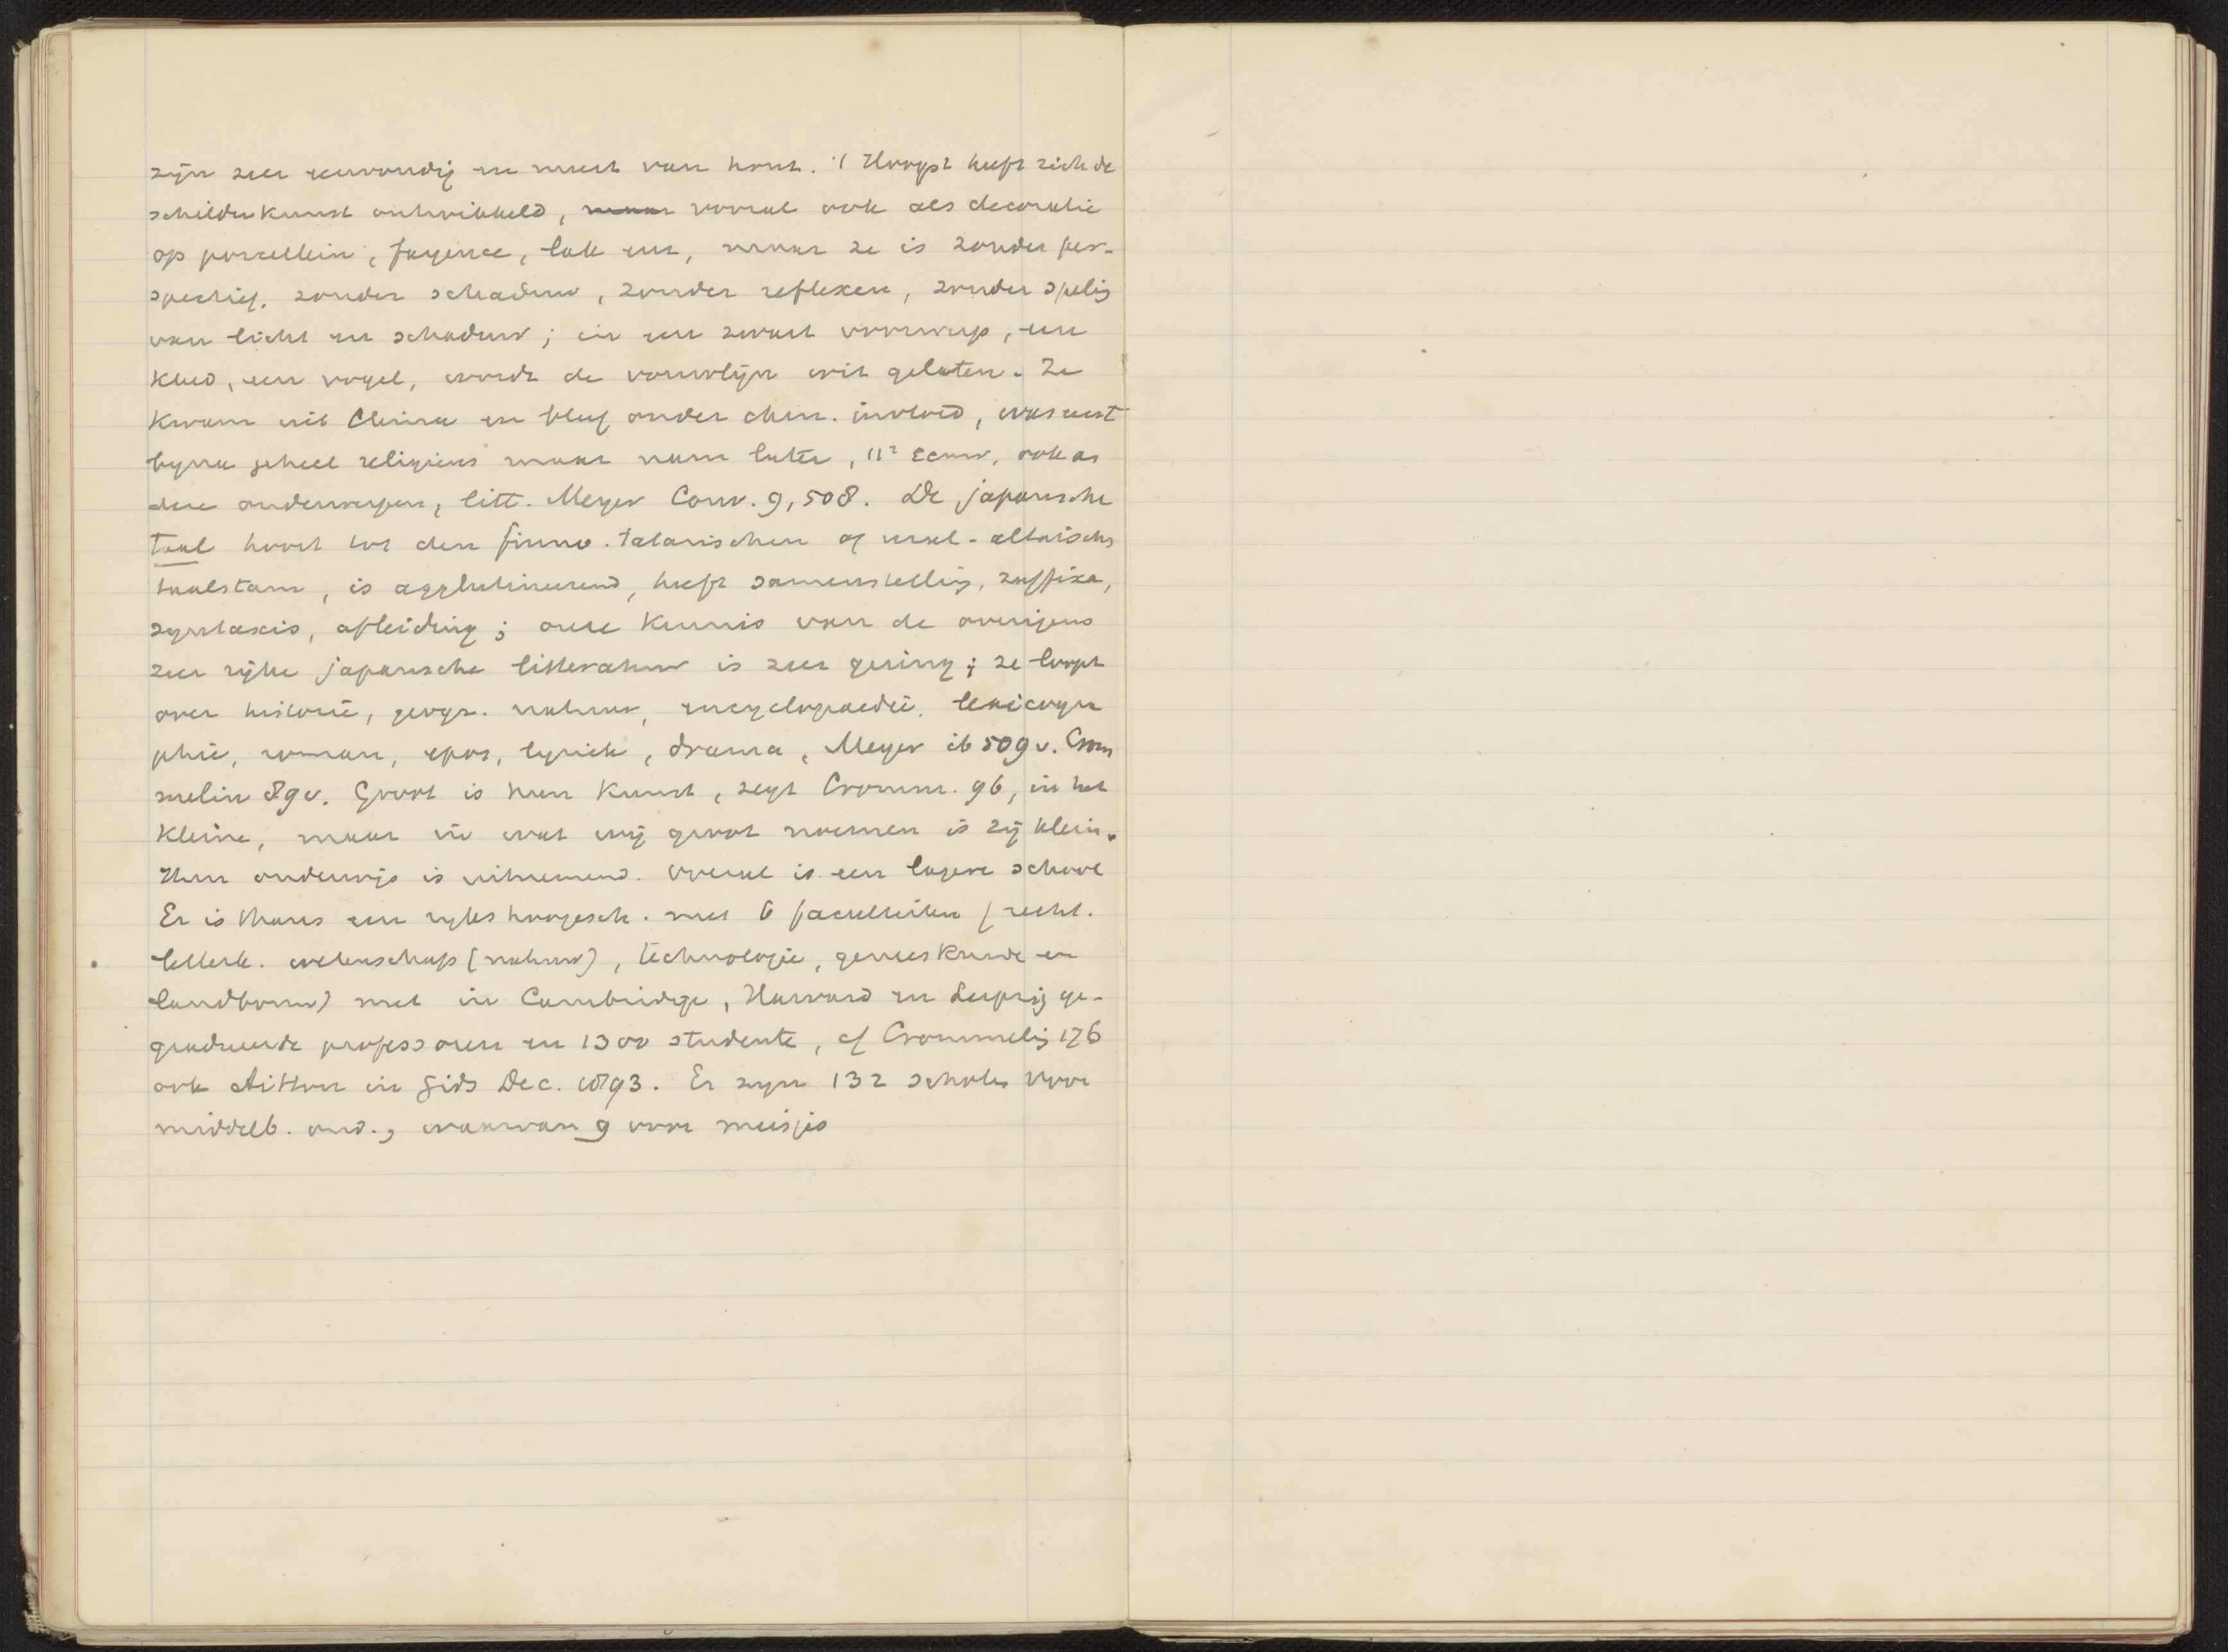 zijn zeer eenvoudig en meest van hout. 't Hoogst heeft zich de
schilderkunst ontwikkeld, maar vooral ook als decoratie
op porcellein, fayence, lak enz, maar ze is zonder per-
spectief. zonder schaduw, zonder reflexen, zonder speling
van licht en schaduw; in een zwart voorwerp, een
kleed, een vogel, wordt de vouwlijn wit gelaten. Ze
kwam uit China en bleef onder chin. invloed, was eerst
byna geheel religieus maar nam later, 11e Eeuw, ook an
dere onderwerpen, litt. Meyer Conv. 9, 508. De japansche
taal hoort tot den finno-tatarischen of ural-altaischen
taalstam, is agglutineerend, heeft samenstelling, suffixa,
syntaxis, afleiding; onze kennis van de overigens
zeer rijke japansche litteratuur is zeer gering; ze loopt
over historie, geogr. natuur, encyclopaedie, lexicogra
phie, roman, epos, lyriek, drama, Meyer ib 509 v. Crom
melin 89 v. Groot is hun kunst, zegt Cromm. 96, in het
kleine, maar in wat wij groot noemen is zij klein.
Hun onderwijs is uitnemend. Overal is een lagere school
Er is thans een rykshoogesch. met 6 faculteiten (recht.
letterk. wetenschap (natuur), technologie, geneeskunde en
landbouw) met in Cambridge, Harvard en Leipzig ge-
gradueerde professoren en 1300 studenten, cf Crommelin 176
ook in Gids Dec. 1893. Er zyn 132 scholen voor
middelb. ond., waarvan 9 voor meisjes